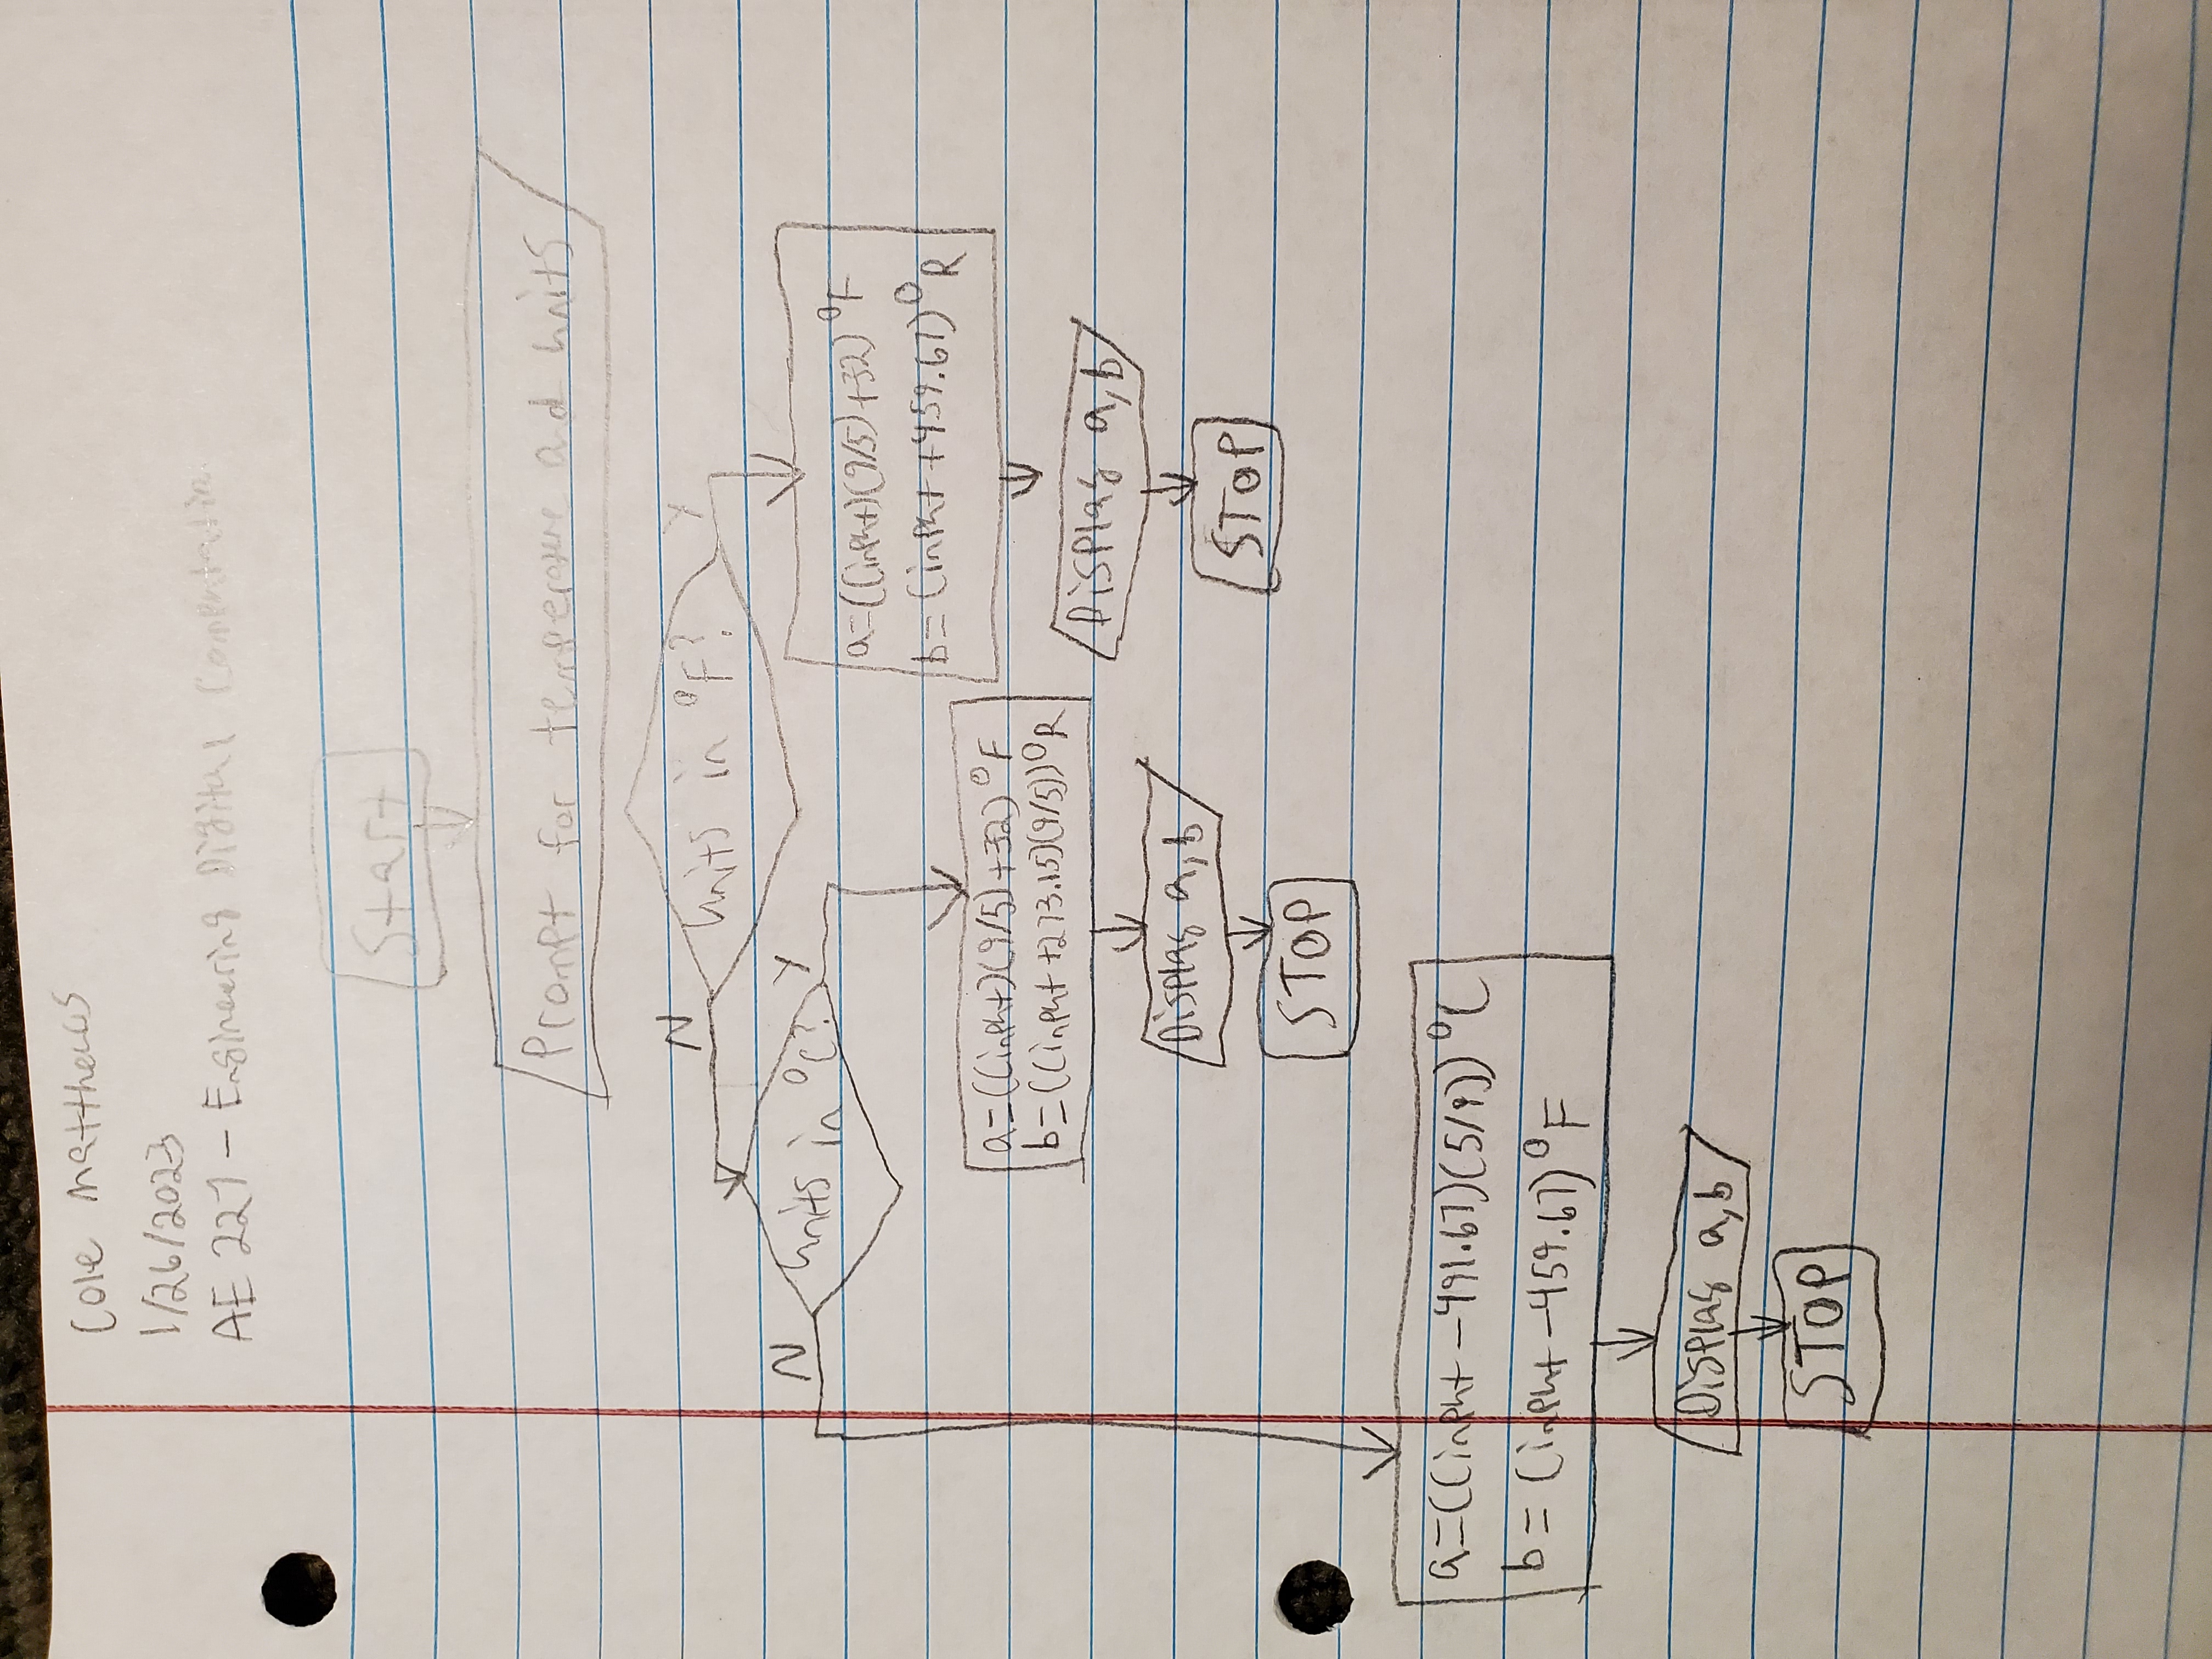 Cole Matthews
1/26/2023
AE 227 - Engineering Digital Computation
Start
Prompt for temperature and units
Units in °F?
N
Y
Units in °C?
N
Y
a=((input)(9/5)+32) °F
b=(input +459.67) °R
a=((input)(9/5)+32) °F
b=((input +273.15)(9/5)) °R
Display a,b
STOP
Display a,b
STOP
a=((input -491.67)(5/9)) °C
b= (input -459.67) °F
Display a,b
STOP